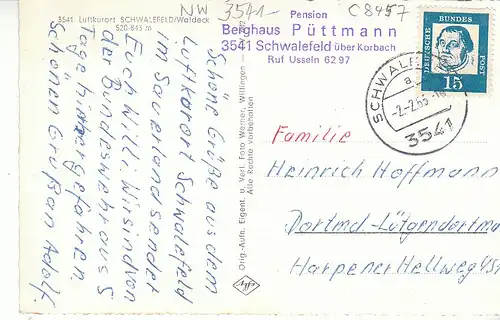 3541 Luftkurort SCHWALEFELD/Waldeck
520-843 m
NW 3541-
C 8457
Pension
Berghaus Püttmann
3541 Schwalefeld über Korbach
Ruf Usseln 62 97
DEUTSCHE BUNDES POST
15
SCHWALEFELD
-2.-2.65
3541
Schöne Grüße aus dem
Luftkurort Schwalefeld
im Sauerland sendet
Euch Willi. Wir sind von
der Bundeswehr aus 5
Tage hierher gefahren.
Schönen Gruß an Adolf.
Orig.-Aufn. Eigent. u. Verl. Foto Werner, Wittingen
Alle Rechte vorbehalten
Familie
Heinrich Hoffmann
Dortmd-Lütgendortmu
Harpener Hellweg